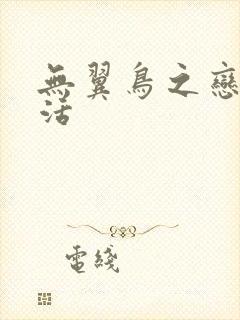 無翼鳥之戀
活
電綫